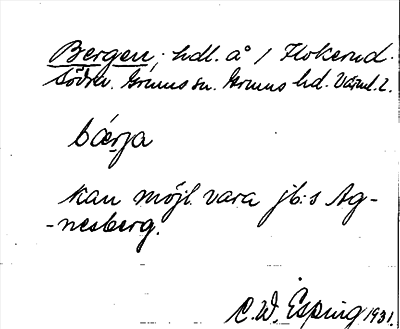 Bergen, hdl. å 1 Flokerud
Södra. Grums sn. Grums hd. Värml. l.
bärja
kan möjl. vara jb:s Ag-
-nesberg.
C. W. Esping 1931.